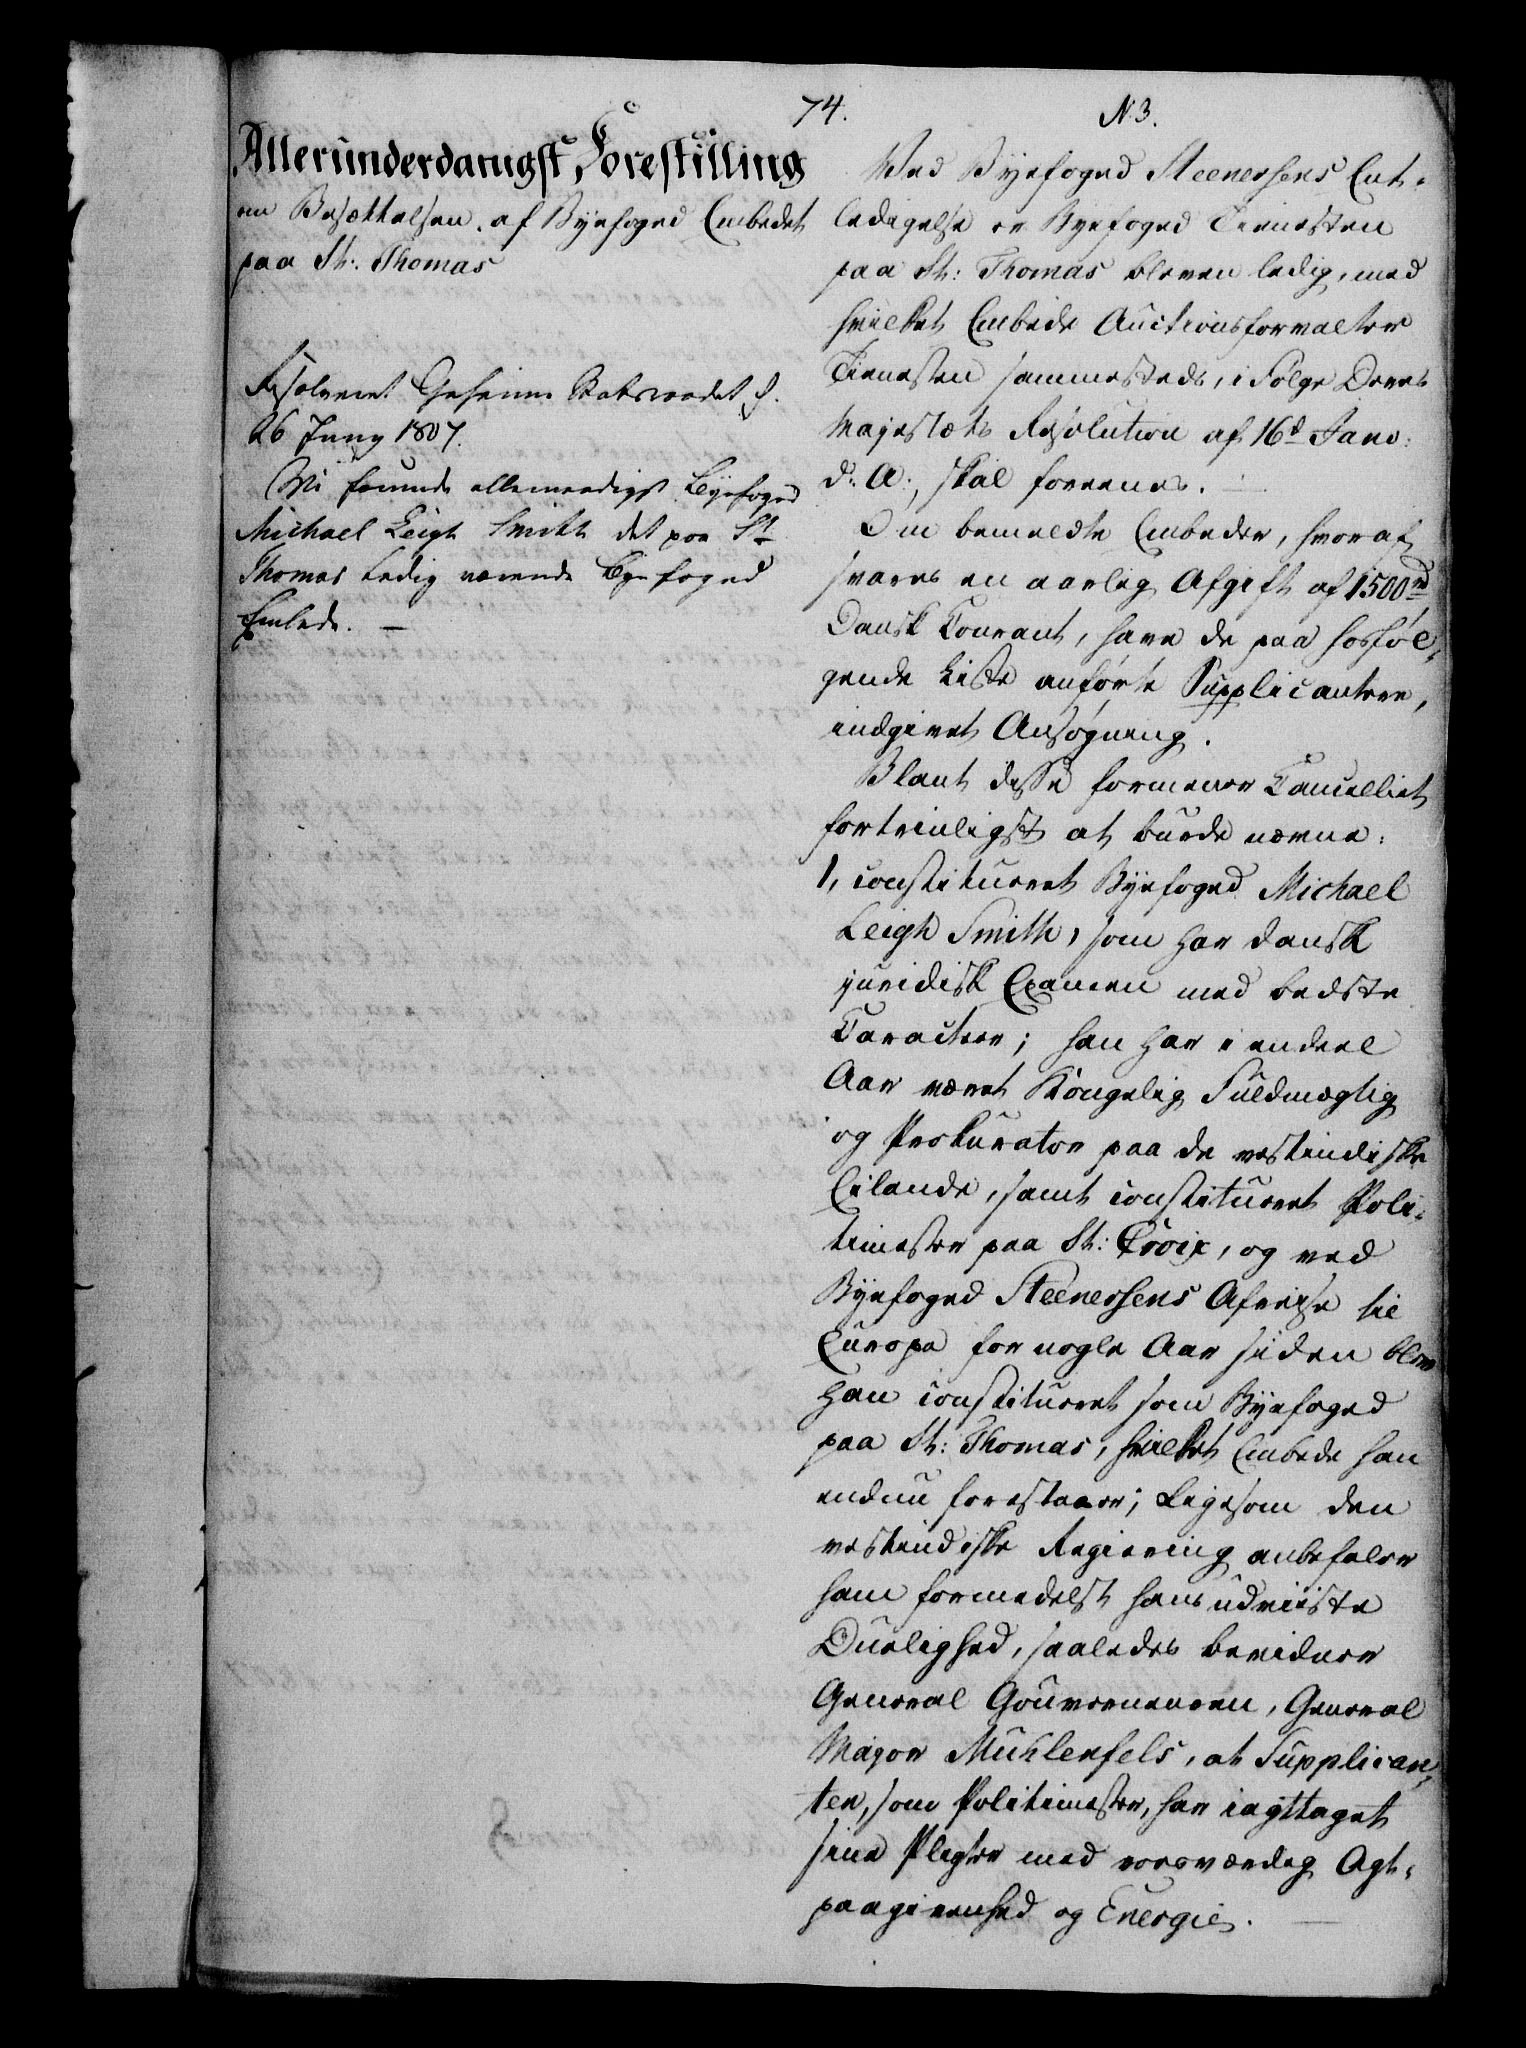 74.
N 3.
Allerunderdanigst Forestilling
om Besættelsen af Byefoged Embedet
paa St: Thomas
Resolveret Geheime Statsraadet d.
26 Juny 1807.
Vi forunde allernaadigst Byefoged
Michael Leigh Smith det paa St
Thomas ledig værende Byefoged
Embede. —
Ved Byefoged Steenersens Ent-
ledigelse er Byefoged Tienesten
paa St: Thomas bleven ledig, med
hvilket Embede Auctionsforvalter
Tienesten sammesteds, i Følge Deres
Majestæts Resolution af 16d Janr:
d: A:, skal forenes. —
Om bemeldte Embeder, hvoraf
svares en aarlig Afgift af 1500 rd
Dansk Courant, have de paa hosføl-
gende Liste anførte Supplicantere,
indgivet Ansøgning.
Blant disse formener Cancelliet
fortrinligst at burde nævne:
1, constitueret Byefoged Michael
Leigh Smith, som har dansk
juridisk Examen med bedste
Caracteer; han har i endeel
Aar været Kongelig Fuldmægtig
og Prokurator paa de vestindiske
Eilande, samt constitueret Poli-
timester paa St: Croix, og ved
Byefoged Steenersens Afreise til
Europa for nogle Aar siden blev
han constitueret som Byefoged
paa St: Thomas, hvilket Embede han
endnu forestaaer; Ligesom den
vestindiske Regiering anbefaler
ham formedelst hans udviiste
Duelighed, saaledes bevidner
General Gouverneuren, General
Major Mühlenfels, at Supplican-
ten, som Politimester, har iagttaget
sine Pligter med roesværdig Agt-
paagivenhed og Energie. —